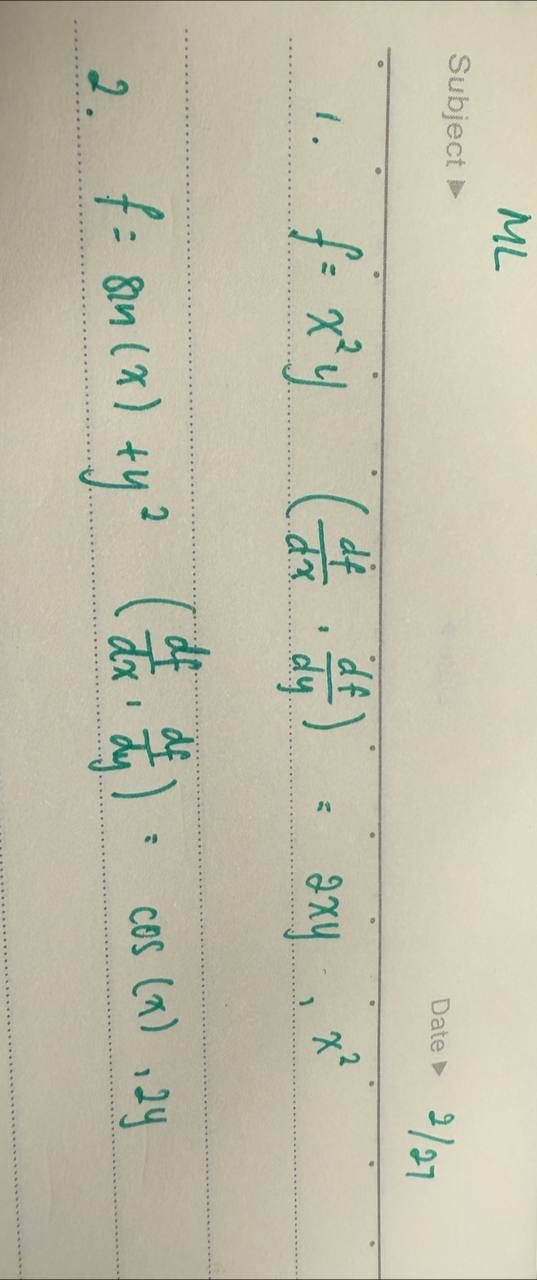 ML
Subject ▶ Date ▶ 2/27
1. f = x²y (df/dx, df/dy) = 2xy, x²
2. f = sin(x) + y² (df/dx, df/dy) = cos(x), 2y